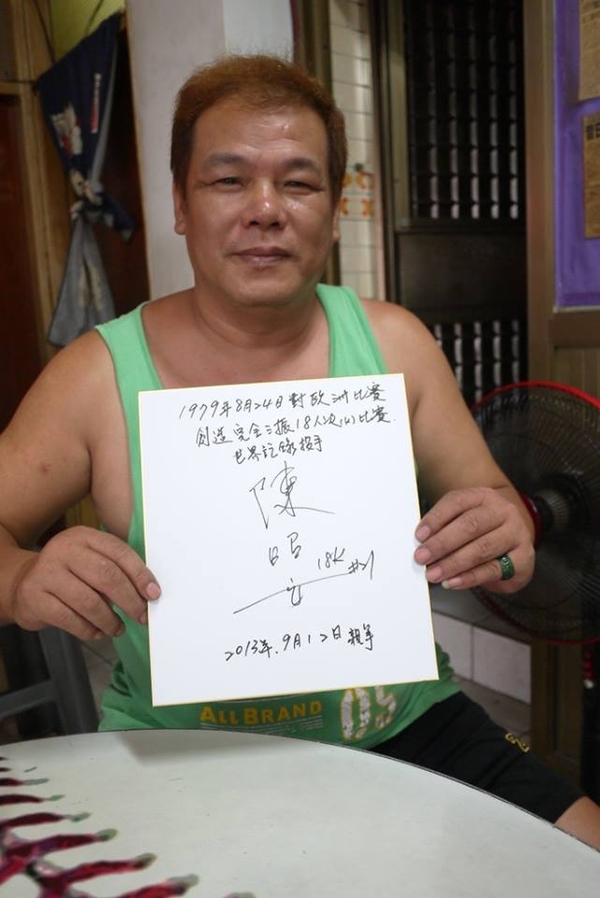 1979年8月24日對欧洲比賽
創造完全三振18人次(K)比賽.
世界記錄投手
陳
昭
安
18K
#21
2013年.9月12日 親筆
ALL BRAND
05